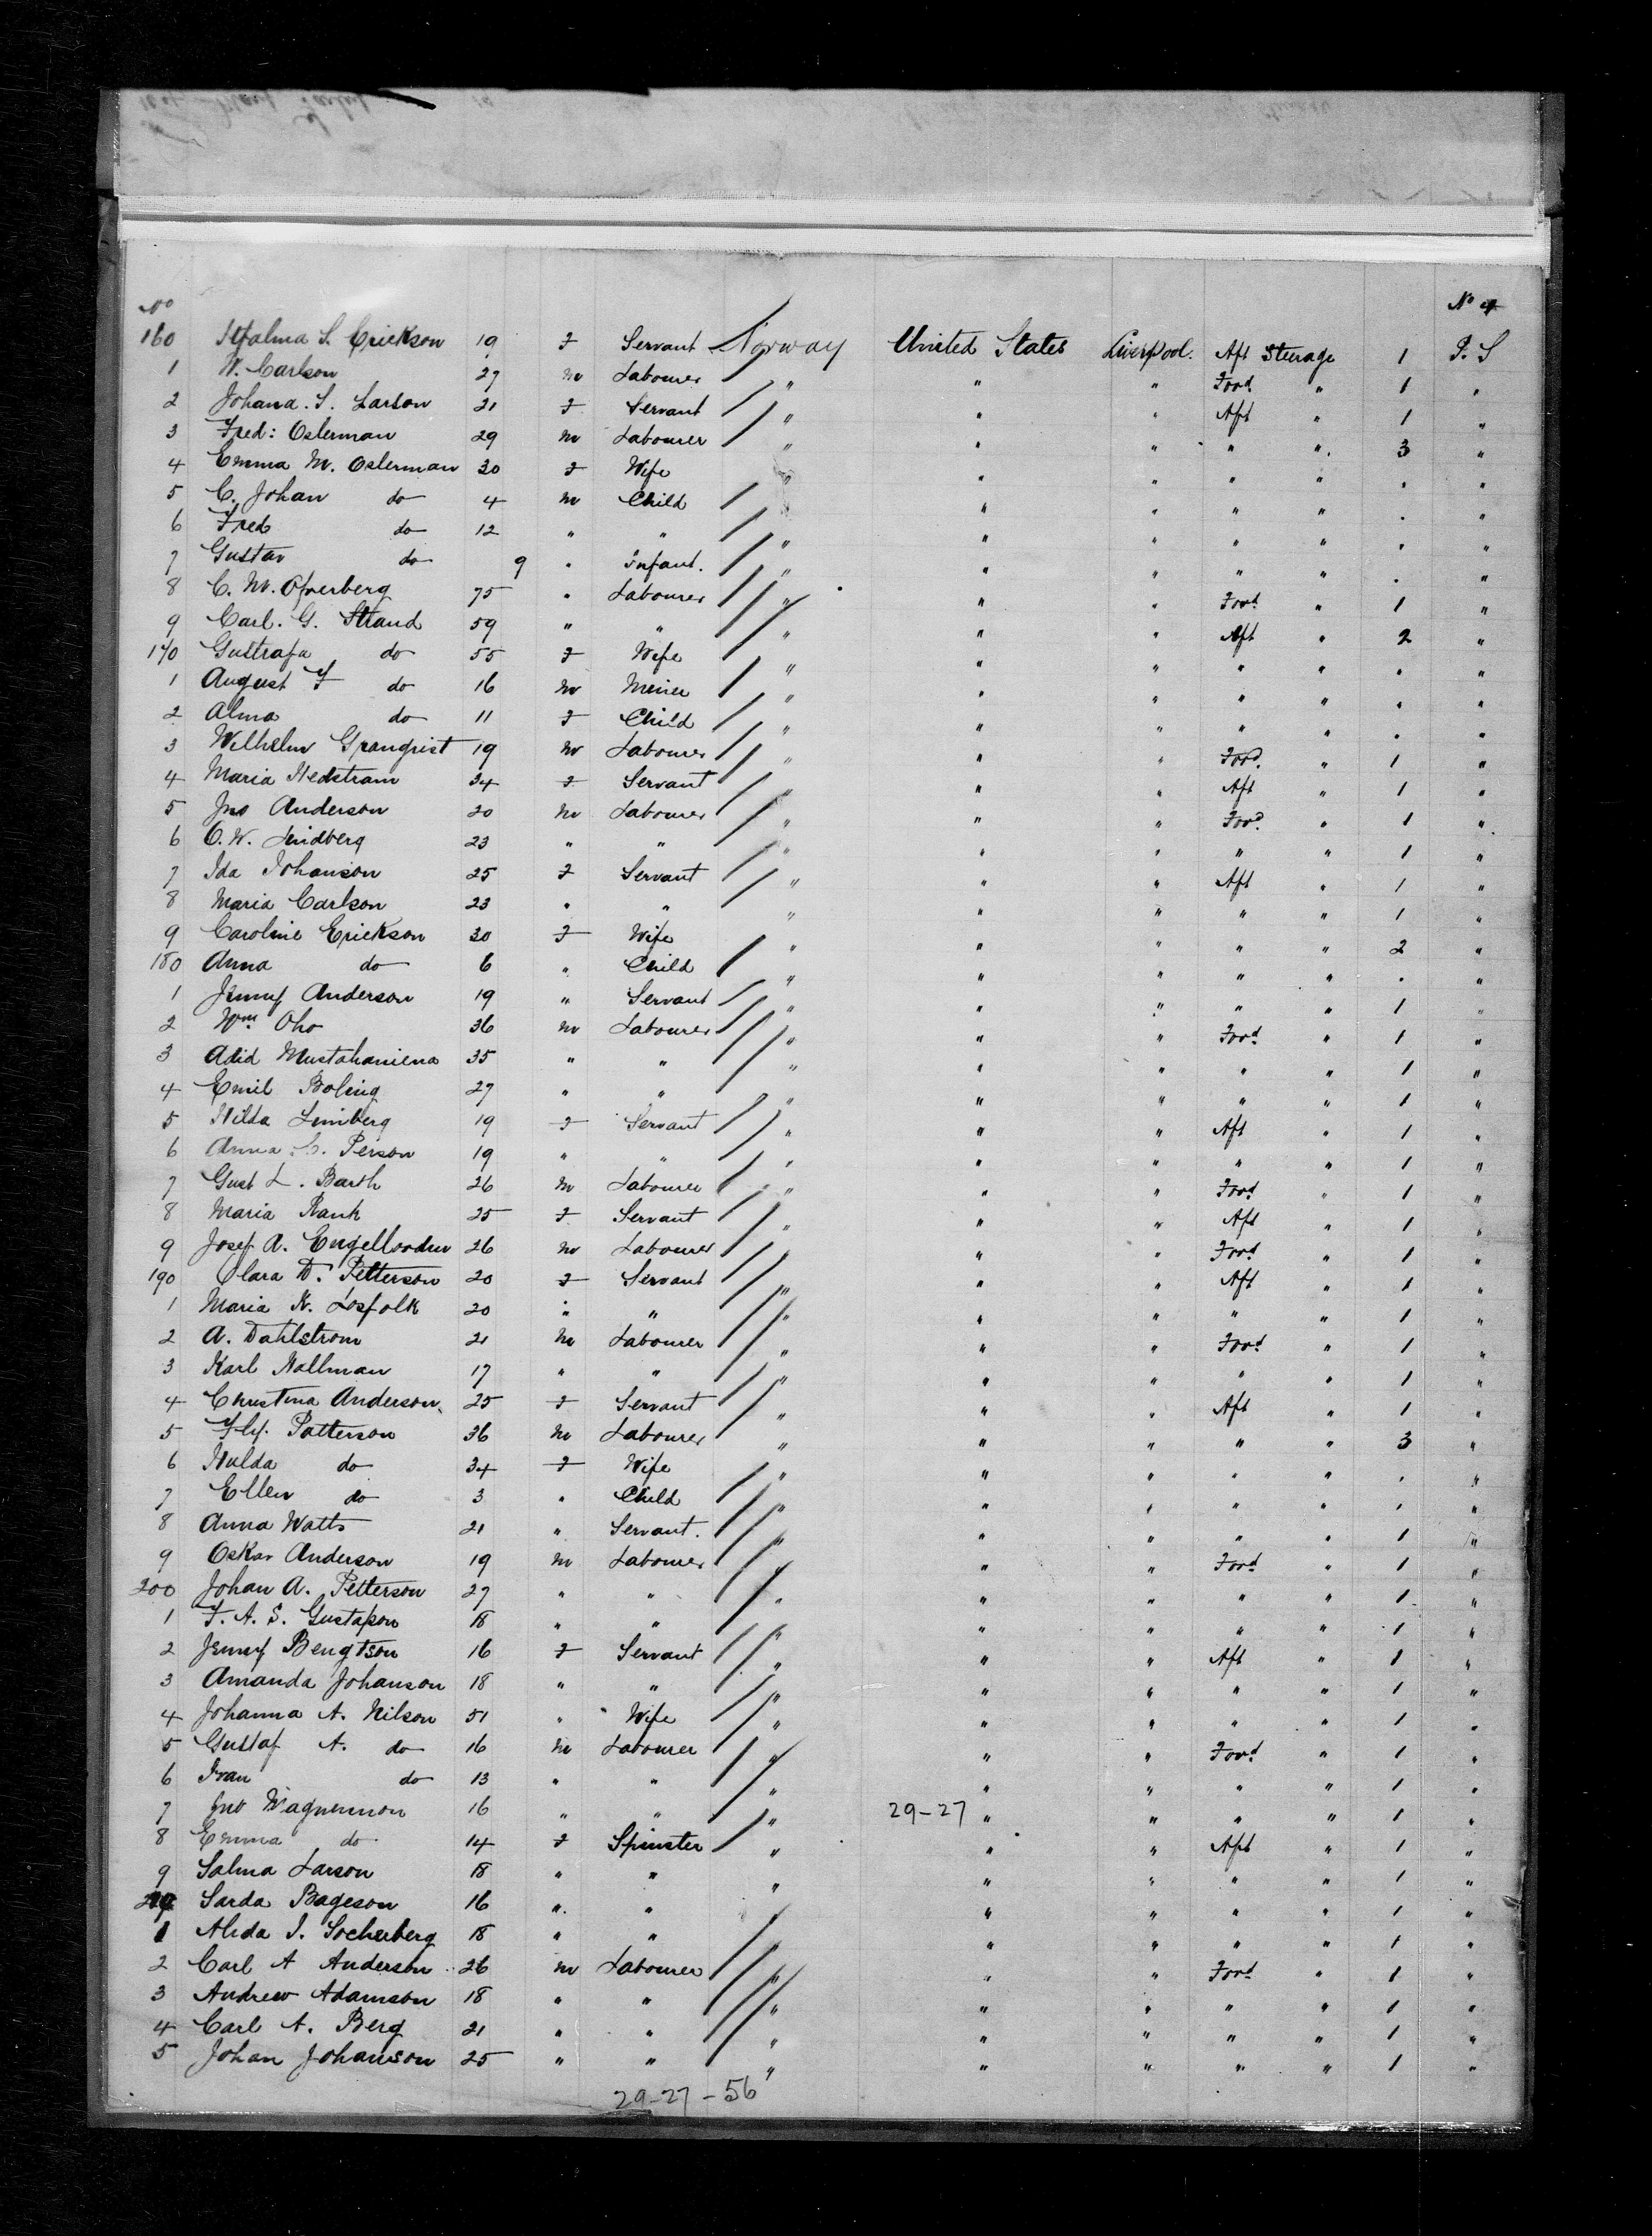 No No 4
160 Hjalma S. Erickson 19 F Servant Norway United States Liverpool. Aft Steerage 1 P. S
1 W. Carlson 27 M Labourer " " " Ford " 1 "
2 Johana. S. Larson 21 F Servant " " " Aft " 1 "
3 Fred: Osterman 29 M Labourer " " " " " 3 "
4 Emma M. Osterman 30 F Wife " " " " " " "
5 C. Johan do 4 M Child " " " " " " "
6 Fred do 12 " " " " " " " " "
7 Gustav do 9 " Infant. " " " " " " "
8 C. M. Ofverberg 75 " Labourer " " " Ford " 1 "
9 Carl. G. Strand 59 " " " " " Aft " 2 "
170 Gustrafa do 55 F Wife " " " " " " "
1 August F do 16 M Miner " " " " " " "
2 Alma do 11 F Child " " " " " " "
3 Wilhelm Granqvist 19 M Labourer " " " Ford " 1 "
4 Maria Hedstram 34 F Servant " " " Aft " 1 "
5 Jno Anderson 20 M Labourer " " " Ford " 1 "
6 C. W. Lindberg 23 " " " " " " " 1 "
7 Ida Johanson 25 F Servant " " " Aft " 1 "
8 Maria Carlson 23 " " " " " " " 1 "
9 Caroline Erickson 30 F Wife " " " " " 2 "
180 Anna do 6 " Child " " " " " " "
1 Jenny Anderson 19 " Servant " " " " " 1 "
2 Wm Oho 36 M Labourer " " " Ford " 1 "
3 Adid Mustahaniena 35 " " " " " " " 1 "
4 Emil Boling 27 " " " " " " " 1 "
5 Hilda Limberg 19 F Servant " " " Aft " 1 "
6 Anna Person 19 " " " " " " " 1 "
7 Gust L. Barth 26 M Labourer " " " Ford " 1 "
8 Maria Rank 25 F Servant " " " Aft " 1 "
9 Josef A. 26 M Labourer " " " Ford " 1 "
190 Clara D. Petterson 20 F Servant " " " Aft " 1 "
1 Maria K. Losfolk 20 " " " " " " " 1 "
2 A. Dahlstrom 21 M Labourer " " " Ford " 1 "
3 Karl Hallman 17 " " " " " " " 1 "
4 Christina Anderson. 25 F Servant " " " Aft " 1 "
5 Patterson 36 M Labourer " " " " " 3 "
6 Hulda do 34 F Wife " " " " " " "
7 Ellen do 3 " Child " " " " " " "
8 Anna Watts 21 " Servant. " " " " " 1 "
9 Oskar Anderson 19 M Labourer " " " Ford " 1 "
200 Johan A. Petterson 27 " " " " " " " 1 "
1 F. A. S. Gustafson 18 " " " " " " " 1 "
2 Jenny Bengtson 16 F Servant " " " Aft " 1 "
3 Amanda Johanson 18 " " " " " " " 1 "
4 Johanna A. Nilson 51 " Wife " " " " " 1 "
5 Gustaf A. do 16 M Labourer " " " Ford " 1 "
6 Ivan do 13 " " " " " " " 1 "
7 Jno Wagnermon 16 " " " 29-27 " " " " 1 "
8 Emma do 14 F Spinster " " " Aft " 1 "
9 Salma Larson 18 " " " " " " " 1 "
210 Sarda Bageson 16 " " " " " " " 1 "
1 Alida I. Socherberg 18 " " " " " " " 1 "
2 Carl A Anderson 26 M Labourer " " " Ford " 1 "
3 Andrew Adamson 18 " " " " " " " 1 "
4 Carl A. Berg 21 " " " " " " " 1 "
5 Johan Johanson 25 " " " " " " " 1 "
29-27-56